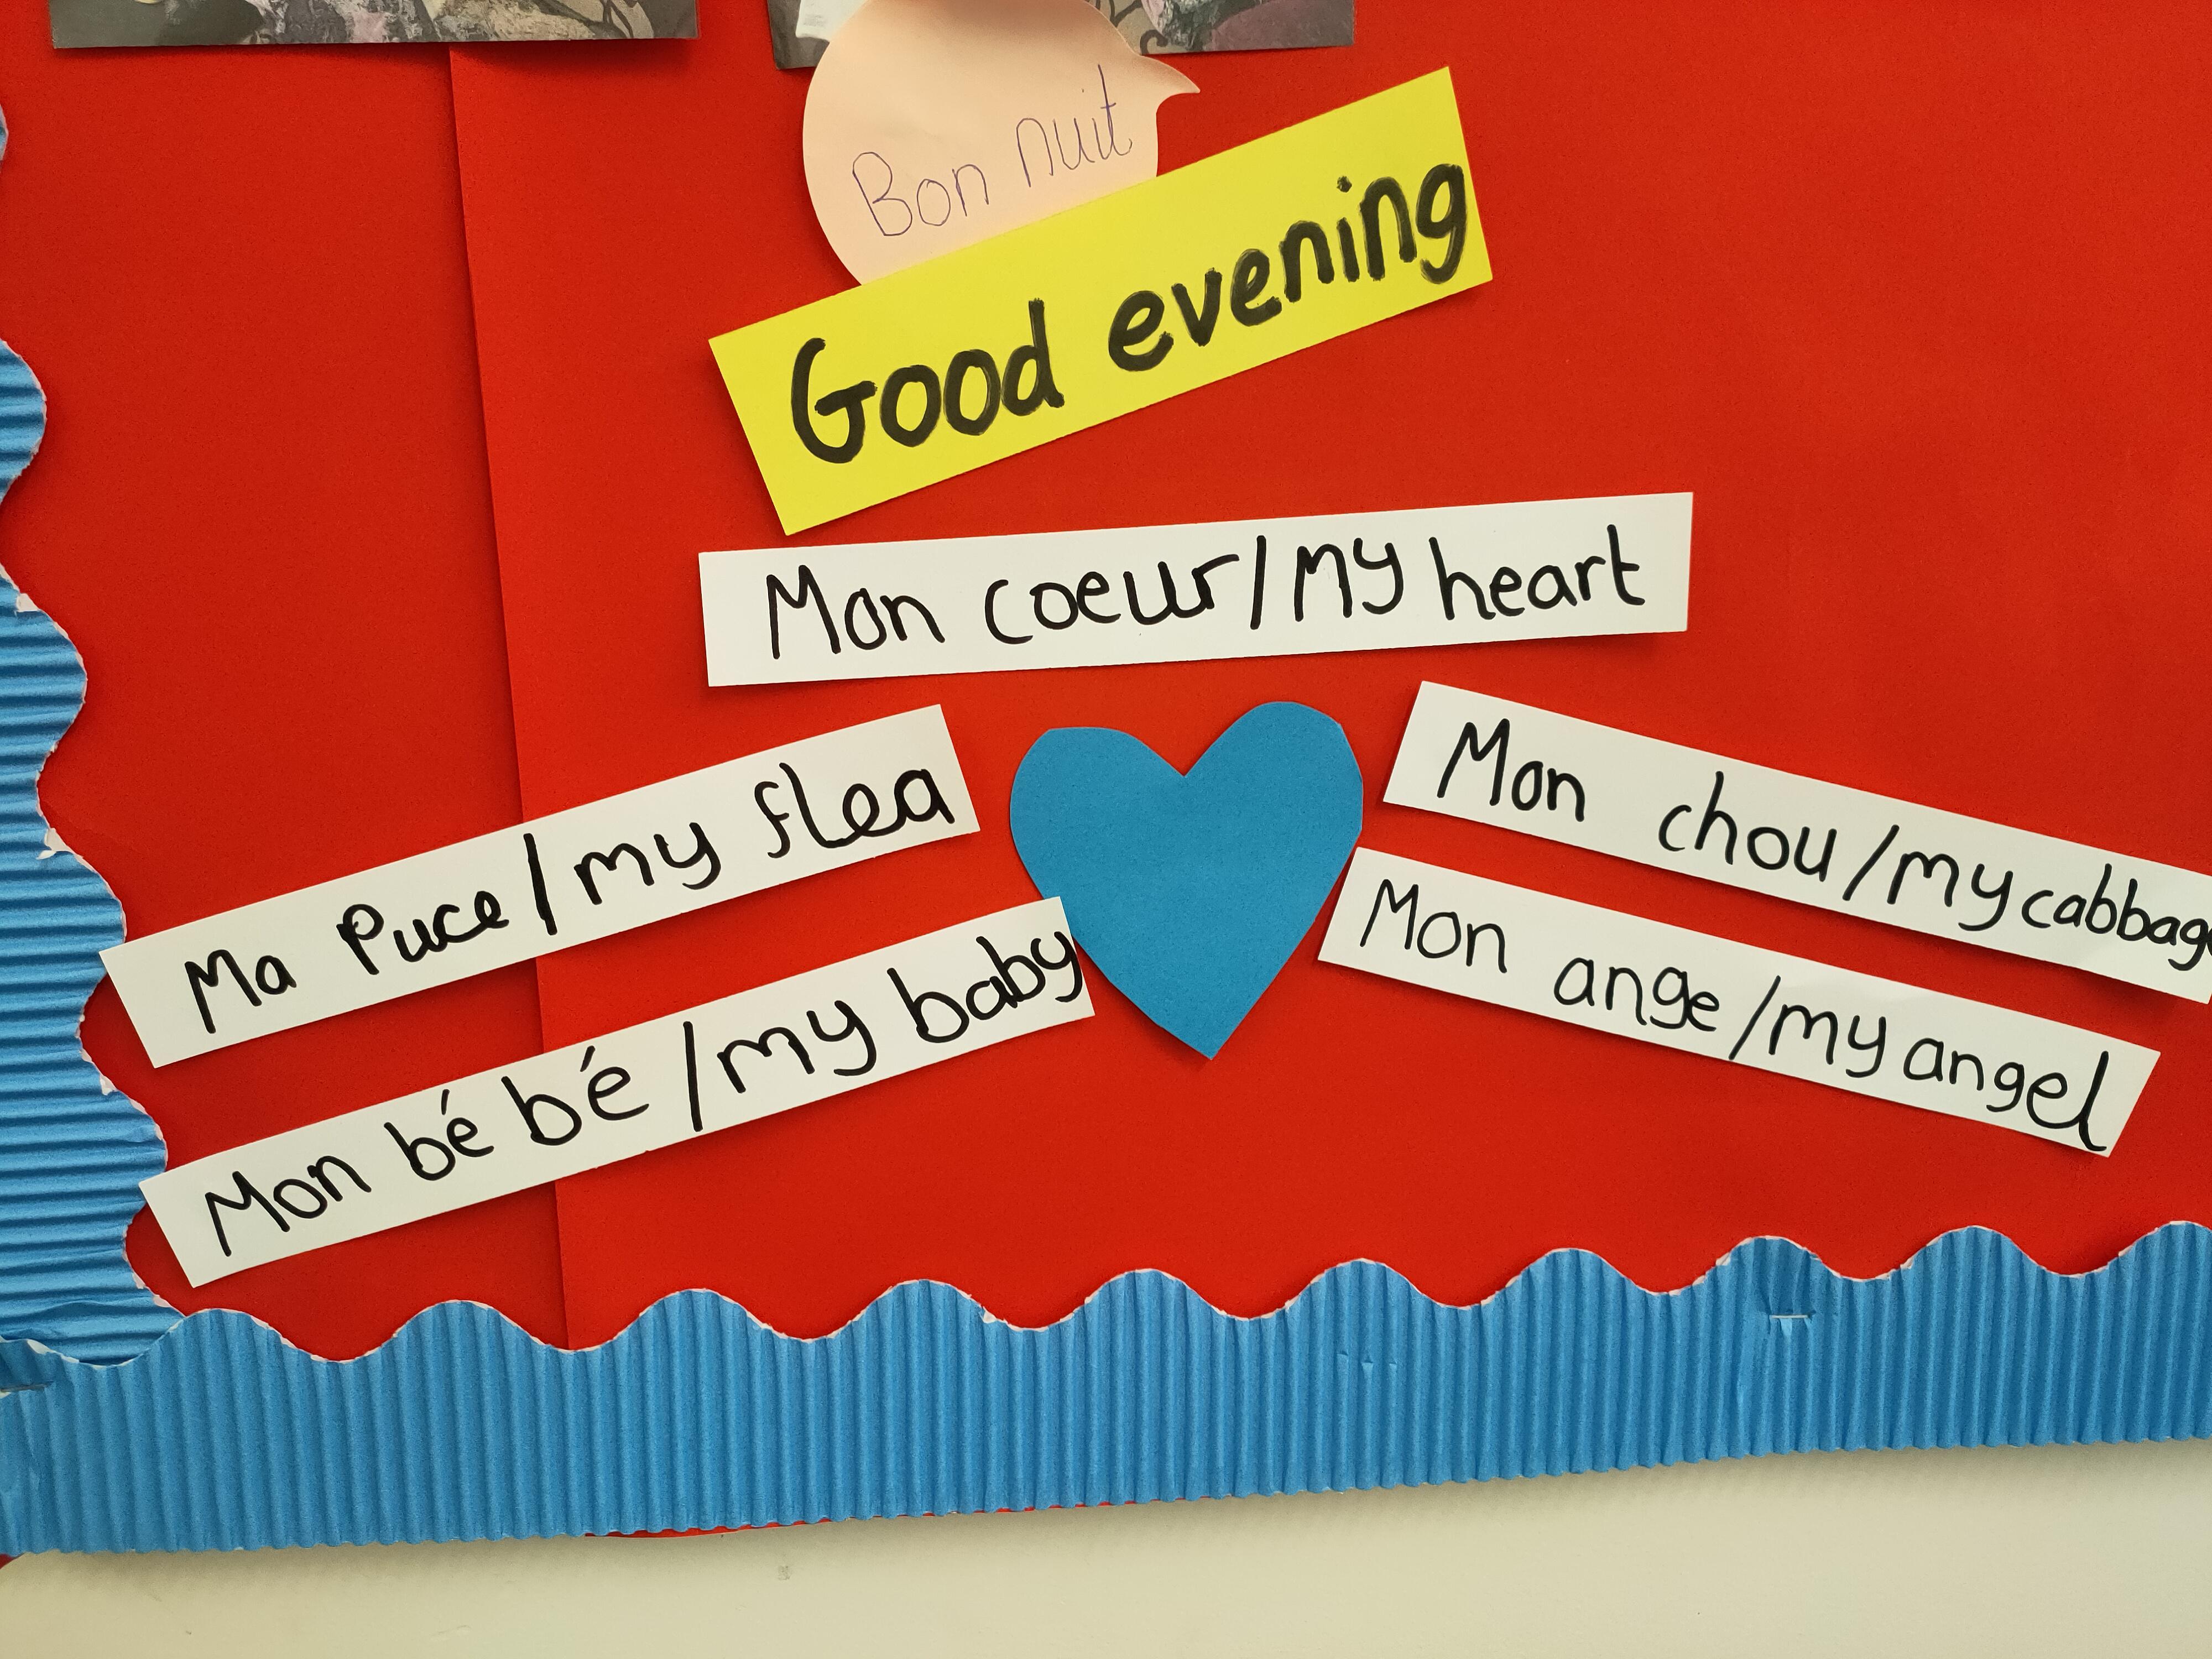 Bon nuit
Good evening
Mon coeur/my heart
Ma Puce/my flea
Mon bé bé/my baby
Mon chou/my cabbage
Mon ange/my angel